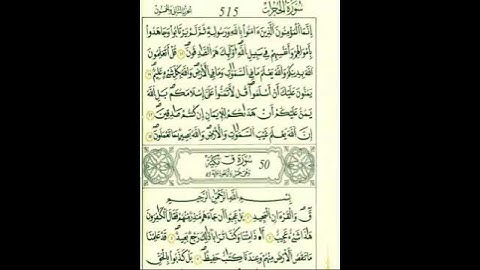 سُورَةُ الحُجُرَاتِ 515 الجزء السادس والعشرون
إِنَّمَا الْمُؤْمِنُونَ الَّذِينَ ءَامَنُوا بِاللَّهِ وَرَسُولِهِ ثُمَّ لَمْ يَرْتَابُوا وَجَاهَدُوا
بِأَمْوَالِهِمْ وَأَنفُسِهِمْ فِي سَبِيلِ اللَّهِ أُولَٰئِكَ هُمُ الصَّادِقُونَ ۝ قُلْ أَتُعَلِّمُونَ
اللَّهَ بِدِينِكُمْ وَاللَّهُ يَعْلَمُ مَا فِي السَّمَٰوَٰتِ وَمَا فِي الْأَرْضِ وَاللَّهُ بِكُلِّ شَيْءٍ عَلِيمٌ ۝
يَمُنُّونَ عَلَيْكَ أَنْ أَسْلَمُوا قُل لَّا تَمُنُّوا عَلَيَّ إِسْلَامَكُم بَلِ اللَّهُ
يَمُنُّ عَلَيْكُمْ أَنْ هَدَاكُمْ لِلْإِيمَانِ إِن كُنتُمْ صَادِقِينَ ۝
إِنَّ اللَّهَ يَعْلَمُ غَيْبَ السَّمَٰوَٰتِ وَالْأَرْضِ وَاللَّهُ بَصِيرٌ بِمَا تَعْمَلُونَ ۝
سُورَةُ ق مَكِّيَّة 50
بِسْمِ اللَّهِ الرَّحْمَٰنِ الرَّحِيمِ
قٓ وَالْقُرْءَانِ الْمَجِيدِ ۝ بَلْ عَجِبُوا أَن جَاءَهُم مُّنذِرٌ مِّنْهُمْ فَقَالَ الْكَٰفِرُونَ
هَٰذَا شَيْءٌ عَجِيبٌ ۝ أَءِذَا مِتْنَا وَكُنَّا تُرَابًا ذَٰلِكَ رَجْعٌ بَعِيدٌ ۝ قَدْ عَلِمْنَا
مَا تَنقُصُ الْأَرْضُ مِنْهُمْ وَعِندَنَا كِتَٰبٌ حَفِيظٌ ۝ بَلْ كَذَّبُوا بِالْحَقِّ